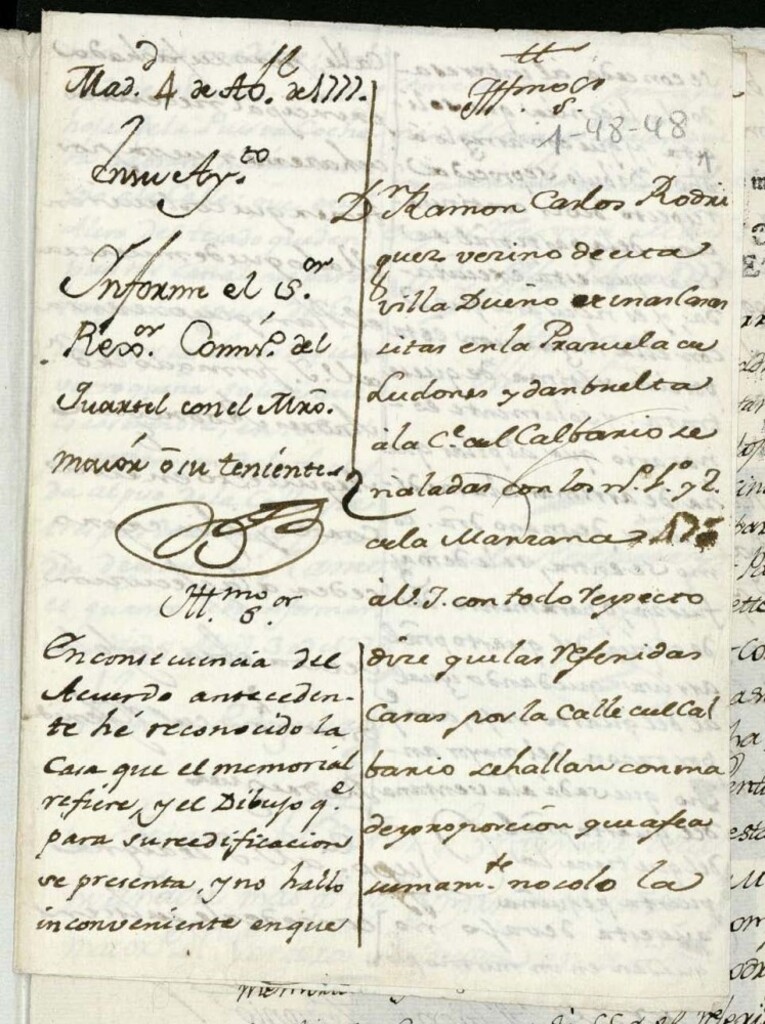 Mad.d 4 de Ag.to de 1777.
En su Ay.to
Ynforme el S.or
Rexx.or Comis.o del
Quartel con el Mro.
mayór ó su teniente
Yll.mo S.or
En consecuencia del
Acuerdo anteceden-
te hé reconocido la
Casa que el memorial
refiere, y el Dibujo q.e
para su reedificacion
se presenta, y no hallo
inconveniente en que
Yll.mo S.or
1-48-48
D.n Ramon Carlos Rodri
guez vezino de esta
villa Dueño de unas Casas
sitas en la Plazuela de
Ludones y dan buelta
á la C.e del Calbario se
naladas con los n.os 1.o y 2.
de la Manzana
á V.S.I. con todo respecto
dize que las referidas
Casas por la Calle del Cal
bario se hallan con una
desproporción que afea
sumam.te no solo la